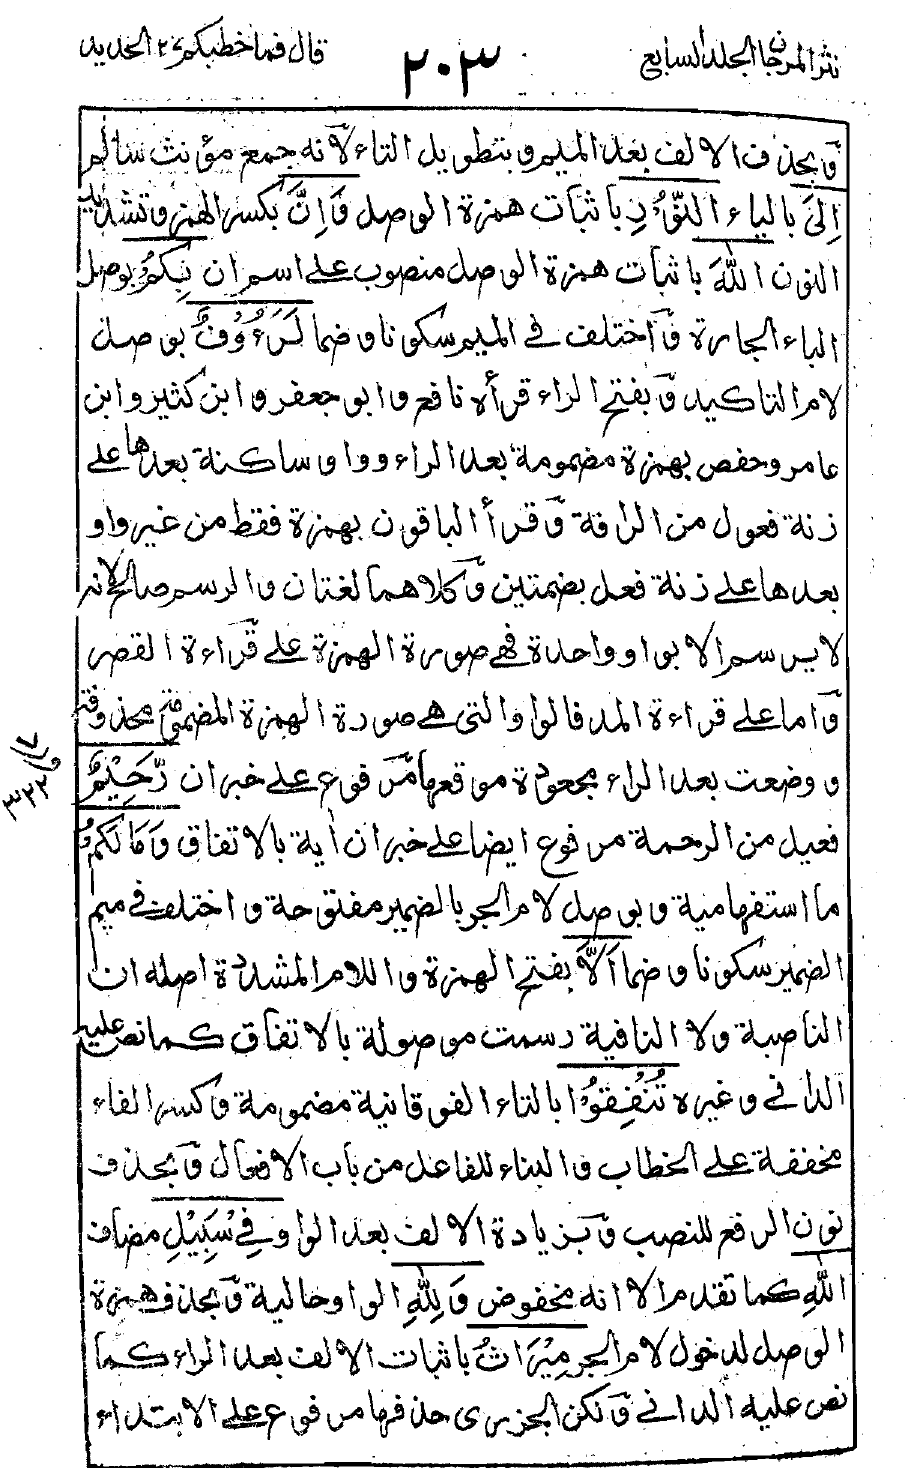 نثر المرجان الجلد السابع
٢٠٣
قال فما خطبكم ٢٧ الحديد
وبحذف الالف بعد الميم وبتطويل التاء لانه جمع مؤنث سالم
اِلَى بالياء النُّوْرِ باثبات همزة الوصل وَاِنَّ بكسر الهمز وتشديد
النون اللّٰهَ باثبات همزة الوصل منصوب على اسم ان بِكُمْ بوصل
الباء الجارة واختلف في الميم سكونا وضما لَرَءُوْفٌ بوصل
لام التاكيد وبفتح الراء قرأه نافع وابو جعفر وابن كثير وابن
عامر وحفص بهمزة مضمومة بعد الراء وواو ساكنة بعدها على
زنة فعول من الرافة وقرأ الباقون بهمزة فقط من غير واو
بعدها على زنة فعل بضمتين وكلاهما لغتان والرسم صالح لانه
لا يرسم الا بواو واحدة فهي صورة الهمزة على قراءة القصر
واما على قراءة المد فالواو التي هي صورة الهمزة المضمومة محذوفة
ووضعت بعد الراء مجعودة موقعها مرفوع على خبر ان رَّحِيْمٌ
فعيل من الرحمة مرفوع ايضا على خبر ان اية بالاتفاق وَمَا لَكُمْ
ما استفهامية وبوصل لام الجر بالضمير مفتوحة واختلف في ميم
الضمير سكونا وضما اَلَّا بفتح الهمزة واللام المشددة اصله ان
الناصبة ولا النافية رسمت موصولة بالاتفاق كما نص عليه
الداني وغيره تُنْفِقُوْا بالتاء الفوقانية مضمومة وكسر الفاء
مخففة على الخطاب والبناء للفاعل من باب الافعال وبحذف
نون الرفع للنصب وبزيادة الالف بعد الواو فِيْ سَبِيْلِ مضاف
اللّٰهِ كما تقدم الا انه مخفوض وَلِلّٰهِ الواو حالية وبحذف همزة
الوصل لدخول لام الجر مِيْرَاثُ باثبات الالف بعد الراء كما
نص عليه الداني ولكن الجزري حذفها مرفوع على الابتداء